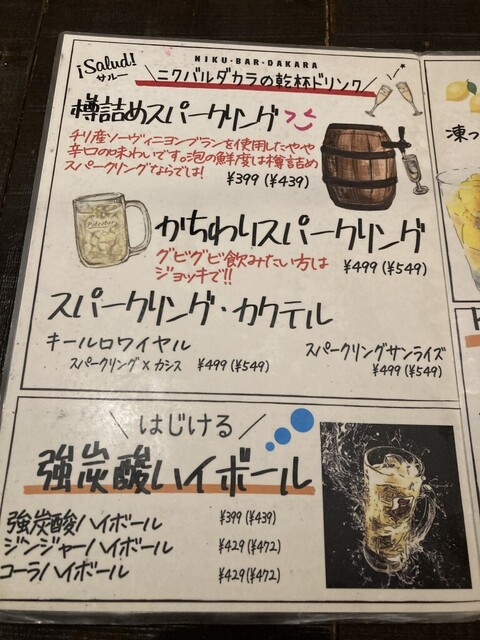 ¡Salud!
サルー
NIKU・BAR・DAKARA
ニクバルダカラの乾杯ドリンク
樽詰めスパークリング
チリ産ソーヴィニヨンブランを使用したやや
辛口の味わいです。泡の鮮度は樽詰め
スパークリングならでは!
¥399(¥439)
かちわりスパークリング
グビグビ飲みたい方は
ジョッキで!!
¥499(¥549)
スパークリング・カクテル
キールロワイヤル
スパークリング×カシス ¥499(¥549)
スパークリングサンライズ
¥499(¥549)
はじける
強炭酸ハイボール
強炭酸ハイボール ¥399(¥439)
ジンジャーハイボール ¥429(¥472)
コーラハイボール ¥429(¥472)
凍っ